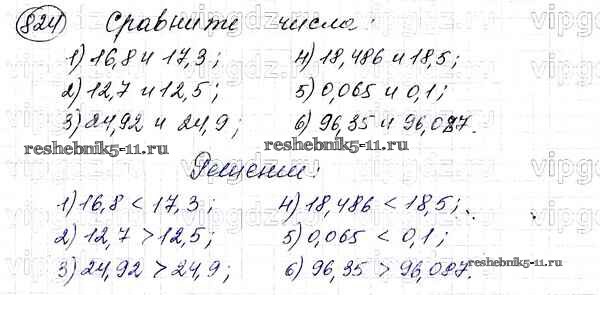 824 Сравните числа:
1) 16,8 и 17,3; 4) 18,486 и 18,5;
2) 12,7 и 12,5; 5) 0,065 и 0,1;
3) 24,92 и 24,9; 6) 96,35 и 96,087.
reshebnik5-11.ru reshebnik5-11.ru
Решение:
1) 16,8 < 17,3; 4) 18,486 < 18,5;
2) 12,7 > 12,5; 5) 0,065 < 0,1;
3) 24,92 > 24,9; 6) 96,35 > 96,087.
reshebnik5-11.ru